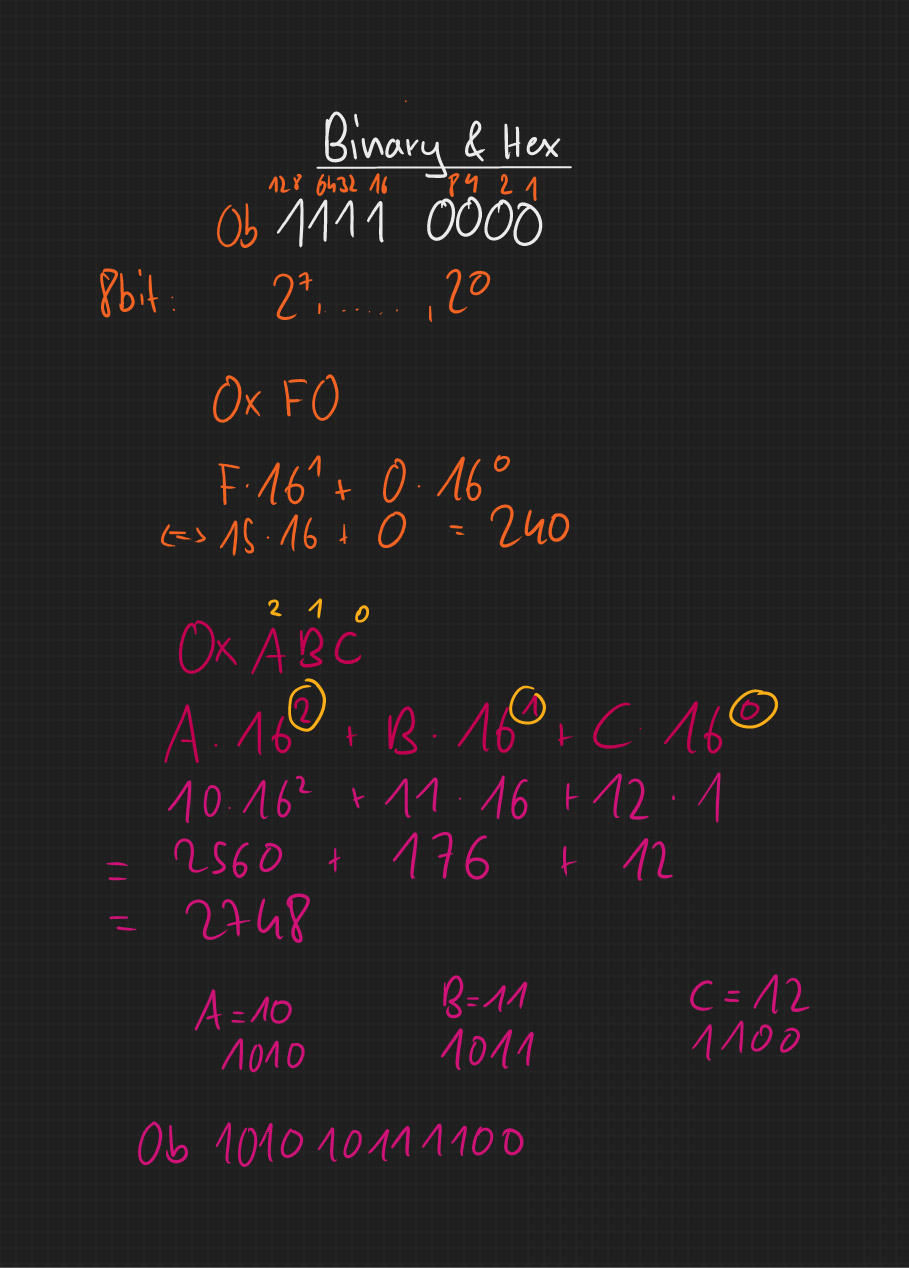 Binary & Hex
128 64 32 16 8 4 2 1
0b 1111 0000
8bit: 2⁷, ......, 2⁰
0x F0
F·16¹ + 0·16⁰
<=> 15·16 + 0 = 240
2 1 0
0x ABC
A·16² + B·16¹ + C·16⁰
10·16² + 11·16 + 12·1
= 2560 + 176 + 12
= 2748
A=10 B=11 C=12
1010 1011 1100
0b 1010 1011 1100